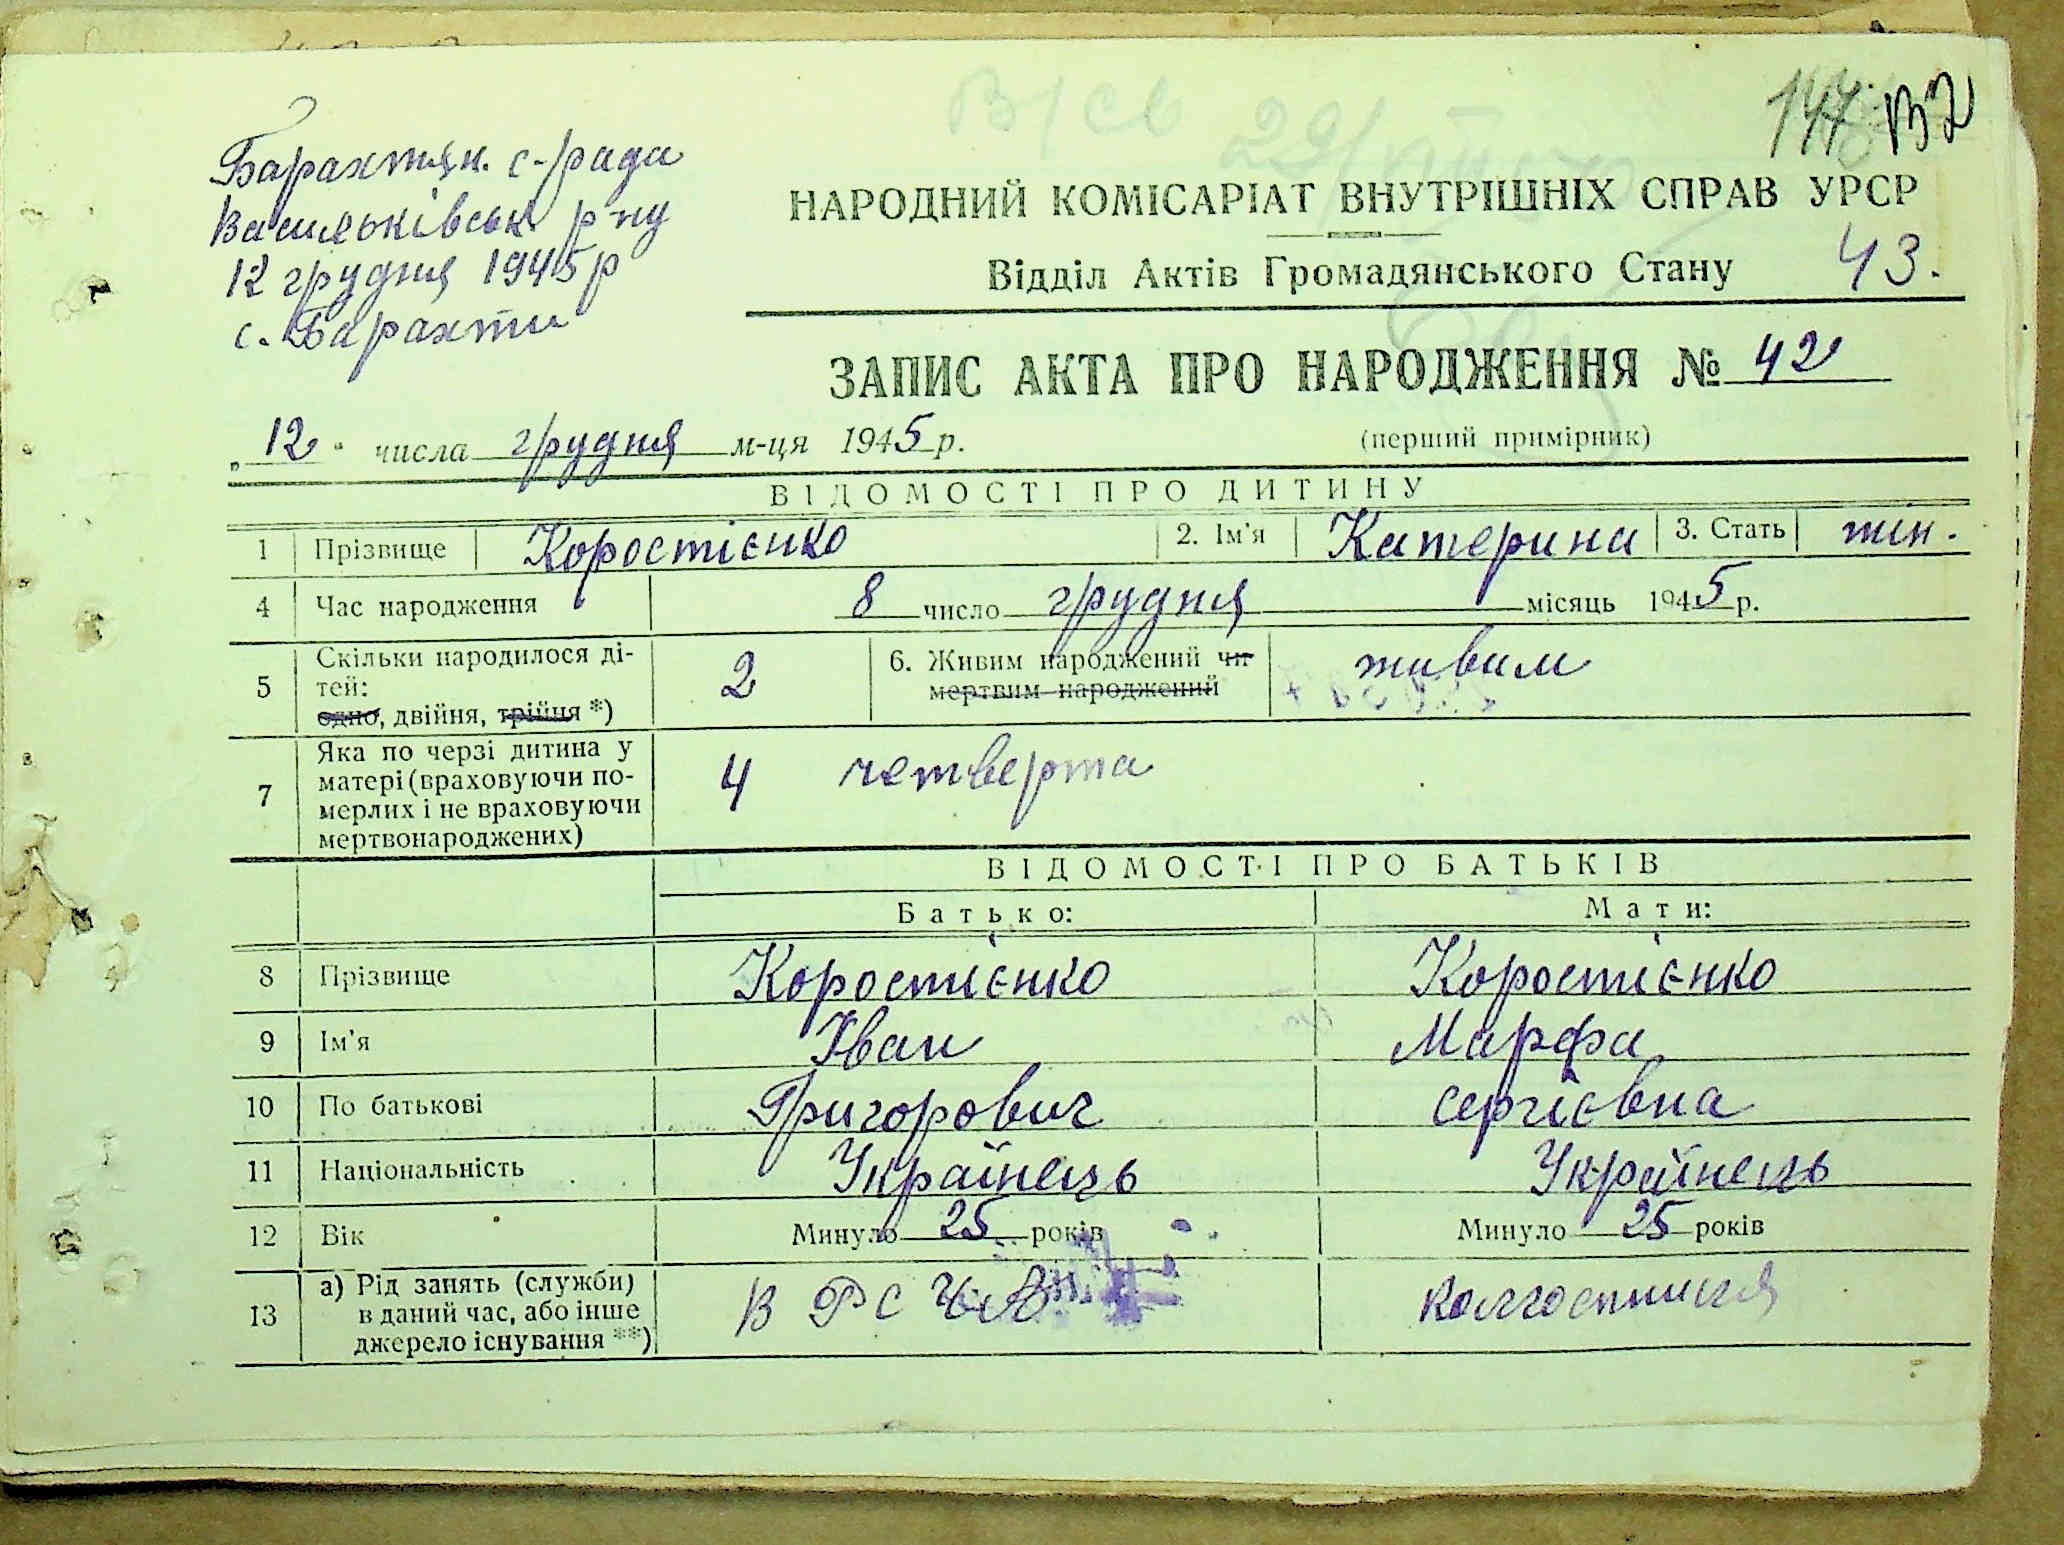 147 132
Барахтян. с-рада
Васильківськ. р-ну
12 грудня 1945 р
с. Барахти
НАРОДНИЙ КОМІСАРІАТ ВНУТРІШНІХ СПРАВ УРСР
Відділ Актів Громадянського Стану 43.
ЗАПИС АКТА ПРО НАРОДЖЕННЯ № 42
(перший примірник)
„12“ числа грудня м-ця 1945 р.
ВІДОМОСТІ ПРО ДИТИНУ
1 Прізвище Коростієнко 2. Ім'я Катерина 3. Стать жін.
4 Час народження 8 число грудня місяць 1945 р.
5 Скільки народилося ді-
тей:
одно, двійня, трійня *) 2
6. Живим народжений чи
мертвим народжений живим
7 Яка по черзі дитина у
матері (враховуючи по-
мерлих і не враховуючи
мертвонароджених) 4 четверта
ВІДОМОСТІ ПРО БАТЬКІВ
Батько: Мати:
8 Прізвище Коростієнко Коростієнко
9 Ім'я Іван Марфа
10 По батькові Григорович Сергієвна
11 Національність Українець Українець
12 Вік Минуло 25 років Минуло 25 років
13 а) Рід занять (служби)
в даний час, або інше
джерело існування **) В РСЧА колгоспниця